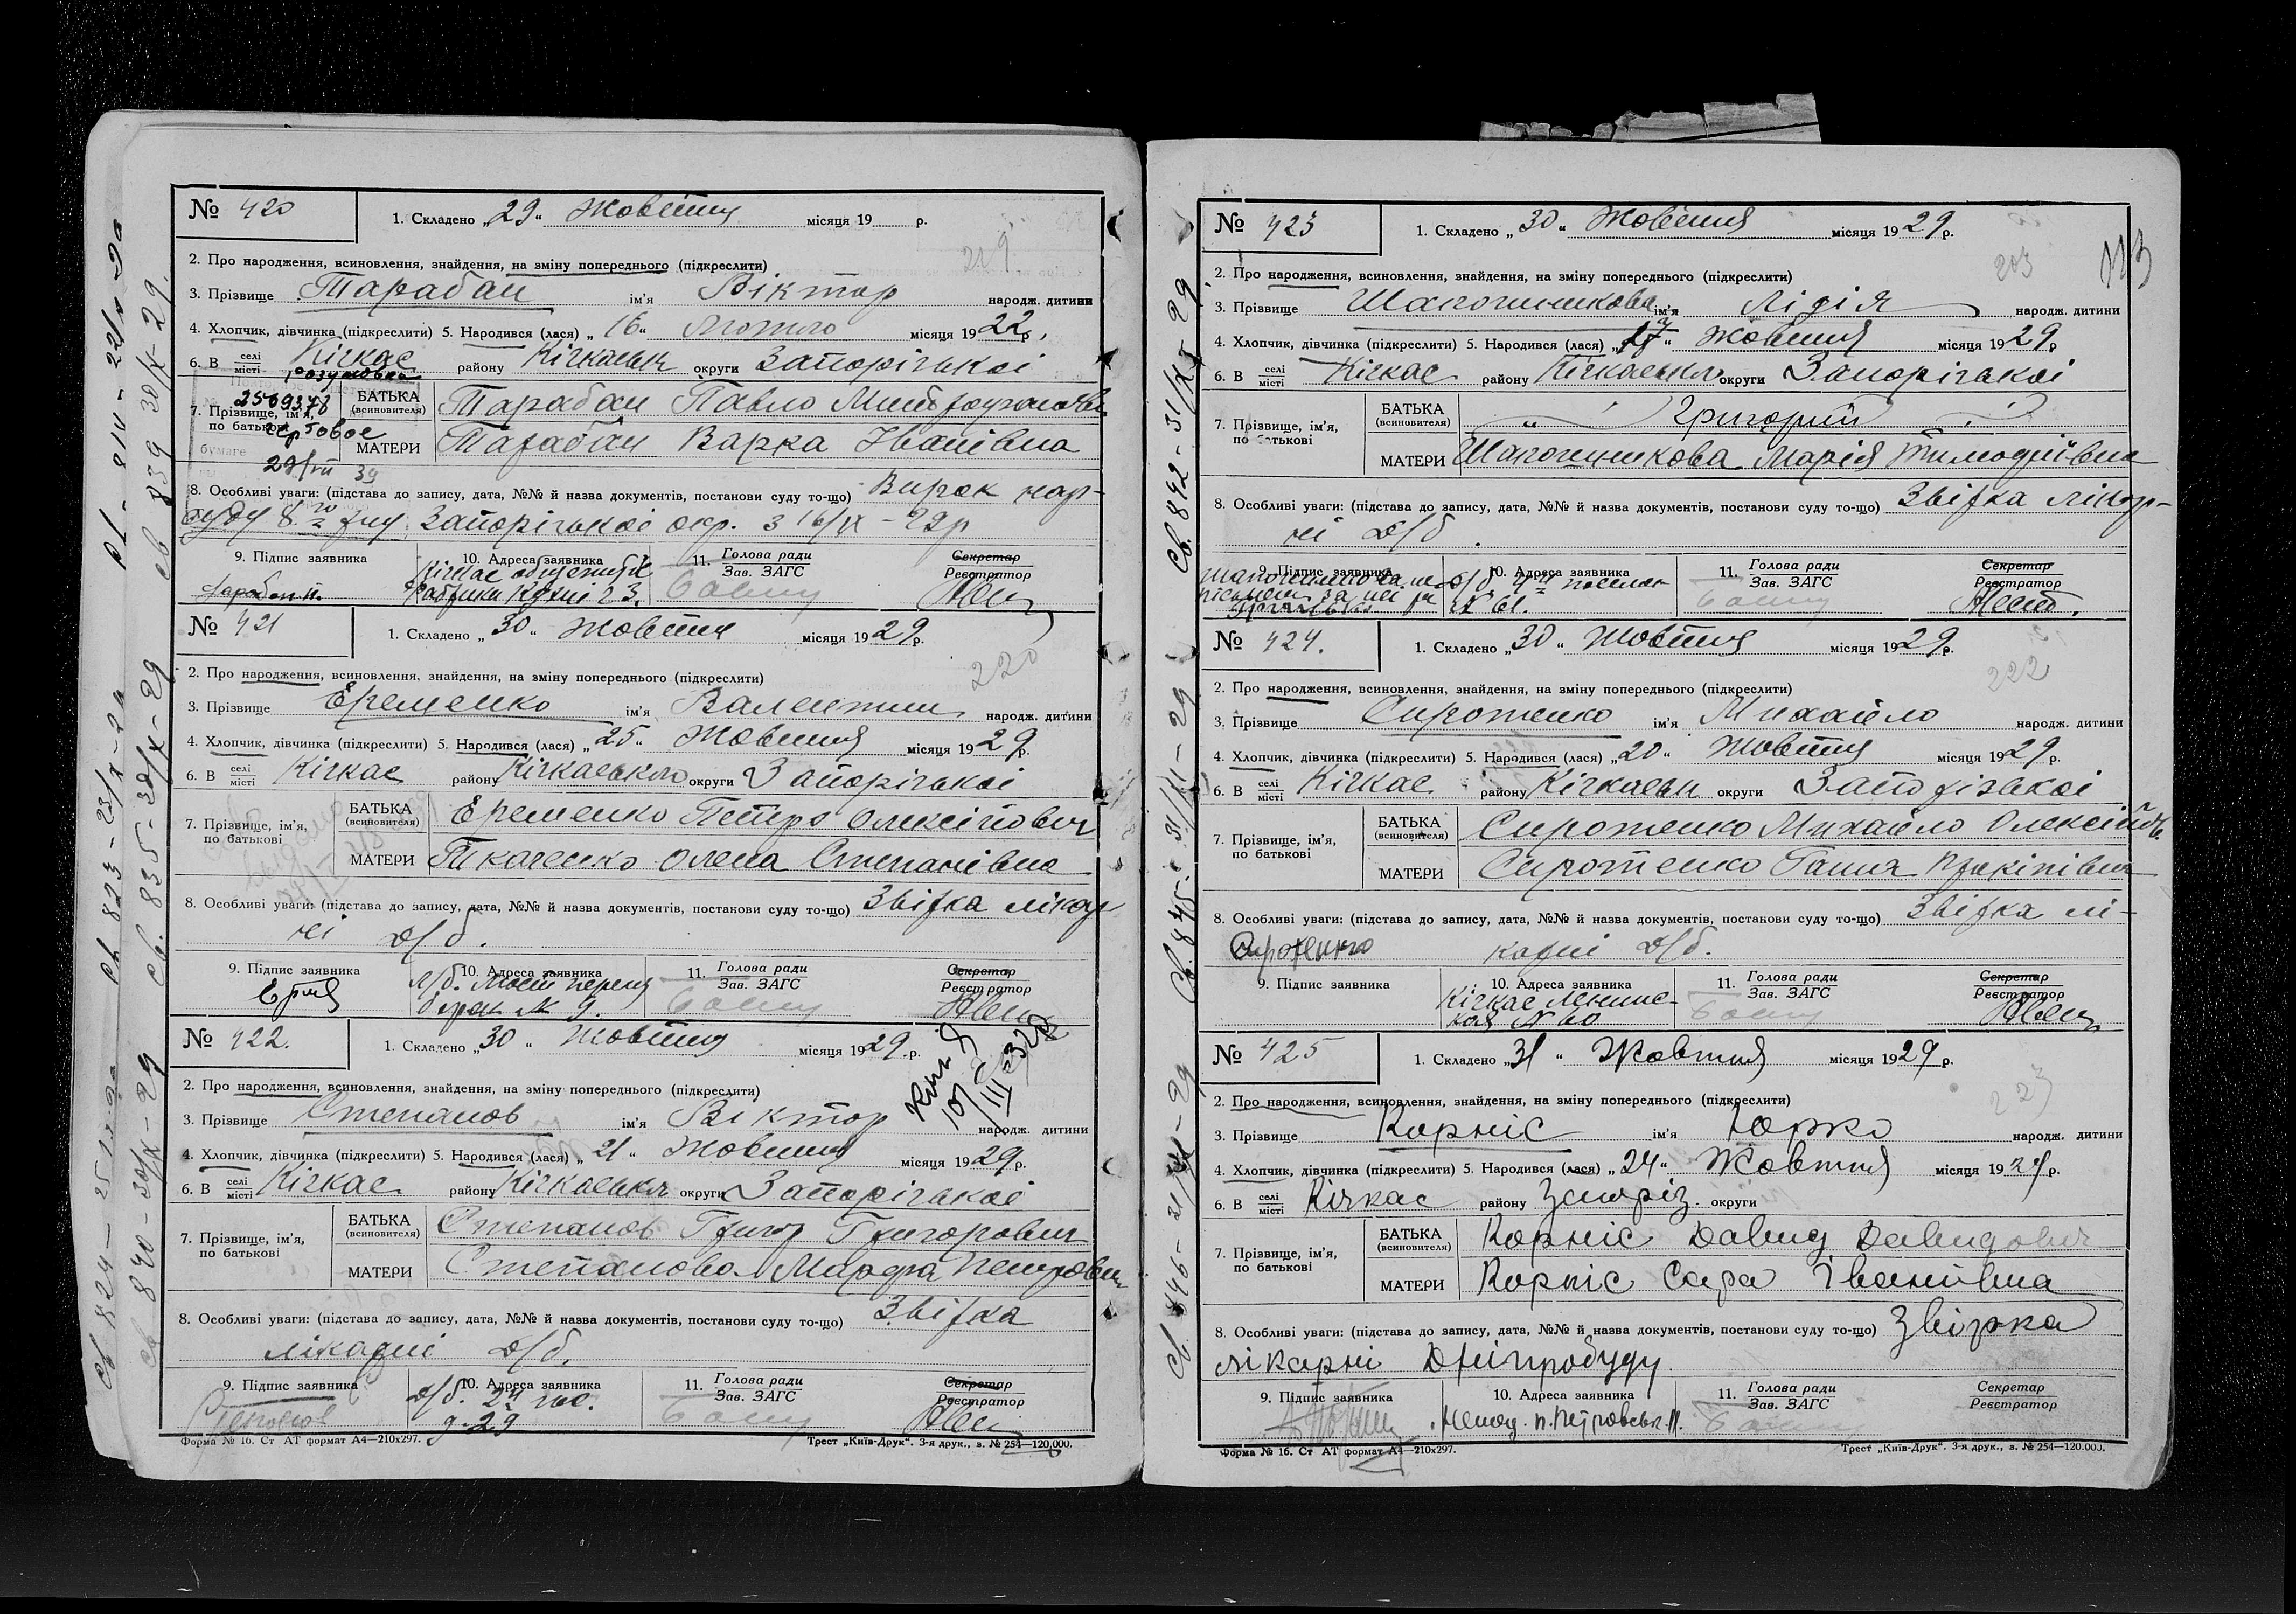 № 420 1. Складено „29“ Жовтня місяця 19 р.
219
2. Про народження, всиновлення, знайдення, на зміну попереднього (підкреслити)
3. Прізвище Тарабан ім'я Віктор народж. дитини
4. Хлопчик, дівчинка (підкреслити) 5. Народився (лася) „16“ Лютого місяця 1922 р.
6. В селі місті Кічкас району Кічкаськ округи Запорізької
7. Прізвище, ім'я, по батькові
БАТЬКА (всиновителя) Тарабан Павло
МАТЕРИ Тарабан Варка Іванівна
8. Особливі уваги: (підстава до запису, дата, №№ й назва документів, постанови суду то-що) Вирок нар-
суду 8 Запорізької окр. з 16/ІХ - 29р
9. Підпис заявника 10. Адреса заявника 11. Голова ради Зав. ЗАГС Секретар Реєстратор
Кічкас
№ 421 1. Складено „30“ Жовтня місяця 1929 р.
220
2. Про народження, всиновлення, знайдення, на зміну попереднього (підкреслити)
3. Прізвище Еременко ім'я Валентин народж. дитини
4. Хлопчик, дівчинка (підкреслити) 5. Народився (лася) „25“ Жовтня місяця 1929 р.
6. В селі місті Кічкас району Кічкаського округи Запорізької
7. Прізвище, ім'я, по батькові
БАТЬКА (всиновителя) Еременко Петро Олексійович
МАТЕРИ Ткаченко Олена Степанівна
8. Особливі уваги: (підстава до запису, дата, №№ й назва документів, постанови суду то-що) Звірка лікар-
ні Д/б.
9. Підпис заявника 10. Адреса заявника 11. Голова ради Зав. ЗАГС Секретар Реєстратор
барак № 9.
№ 422. 1. Складено „30“ Жовтня місяця 1929 р.
2. Про народження, всиновлення, знайдення, на зміну попереднього (підкреслити)
3. Прізвище Степанов ім'я Віктор народж. дитини
4. Хлопчик, дівчинка (підкреслити) 5. Народився (лася) „21“ Жовтня місяця 1929 р.
6. В селі місті Кічкас району Кічкаськ округи Запорізької
7. Прізвище, ім'я, по батькові
БАТЬКА (всиновителя) Степанов Григор Григорович
МАТЕРИ Степанова Марфа Петровна
8. Особливі уваги: (підстава до запису, дата, №№ й назва документів, постанови суду то-що) Звірка
лікарні Д/б.
9. Підпис заявника 10. Адреса заявника 11. Голова ради Зав. ЗАГС Секретар Реєстратор
Форма № 16. Ст АТ формат А4—210х297. Трест „Київ-Друк“. 3-я друк., з. № 254—120.000.
№ 423 1. Складено „30“ Жовтня місяця 1929 р.
203
2. Про народження, всиновлення, знайдення, на зміну попереднього (підкреслити)
3. Прізвище Шапошникова ім'я Лідія народж. дитини
4. Хлопчик, дівчинка (підкреслити) 5. Народився (лася) Жовтня місяця 1929 р.
6. В селі місті Кічкас району Кічкаського округи Запорізької
7. Прізвище, ім'я, по батькові
БАТЬКА (всиновителя) „ Григорий
МАТЕРИ Шапошникова Марія Тимофіївна
8. Особливі уваги: (підстава до запису, дата, №№ й назва документів, постанови суду то-що) Звірка лікар-
ні Д/б.
9. Підпис заявника 10. Адреса заявника 11. Голова ради Зав. ЗАГС Секретар Реєстратор
№ 61.
№ 424. 1. Складено „30“ Жовтня місяця 1929 р.
222
2. Про народження, всиновлення, знайдення, на зміну попереднього (підкреслити)
3. Прізвище Сиротенко ім'я Михайло народж. дитини
4. Хлопчик, дівчинка (підкреслити) 5. Народився (лася) „20“ Жовтня місяця 1929 р.
6. В селі місті Кічкас району Кічкаськ округи Запорізької
7. Прізвище, ім'я, по батькові
БАТЬКА (всиновителя) Сиротенко Михайло Олексійов.
МАТЕРИ Сиротенко Ганна Пракіпівна
8. Особливі уваги: (підстава до запису, дата, №№ й назва документів, постанови суду то-що) Звірка лі-
Сиротенко карні Д/б.
9. Підпис заявника 10. Адреса заявника 11. Голова ради Зав. ЗАГС Секретар Реєстратор
Кічкас Ленинс-
кая № 60
№ 425 1. Складено „31“ Жовтня місяця 1929 р.
223
2. Про народження, всиновлення, знайдення, на зміну попереднього (підкреслити)
3. Прізвище Корніс ім'я Юрко народж. дитини
4. Хлопчик, дівчинка (підкреслити) 5. Народився (лася) „24“ Жовтня місяця 1929 р.
6. В селі місті Кічкас району Запоріз. округи
7. Прізвище, ім'я, по батькові
БАТЬКА (всиновителя) Корніс Давид Давидович
МАТЕРИ Корніс Сара Іванівна
8. Особливі уваги: (підстава до запису, дата, №№ й назва документів, постанови суду то-що) Звірка
лікарні Дніпробуду.
9. Підпис заявника 10. Адреса заявника 11. Голова ради Зав. ЗАГС Секретар Реєстратор
Форма № 16. Ст АТ формат А4—210х297. Трест „Київ-Друк“. 3-я друк., з. № 254—120.000.